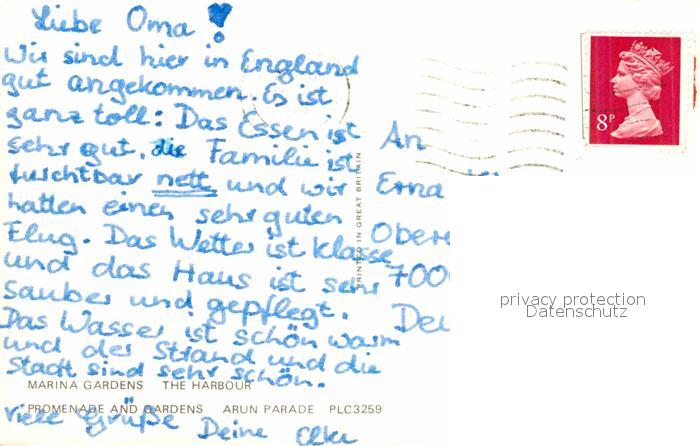 Liebe Oma!
Wir sind hier in England
gut angekommen. Es ist
ganz toll: Das Essen ist
sehr gut, die Familie ist
furchtbar nett und wir
hatten einen sehr guten
Flug. Das Wetter ist klasse
und das Haus ist sehr
sauber und gepflegt.
Das Wasser ist schön warm
und der Strand und die
Stadt sind sehr schön.
viele Grüße Deine Elke
MARINA GARDENS THE HARBOUR
PROMENADE AND GARDENS ARUN PARADE PLC3259
PRINTED IN GREAT BRITAIN
An
Erna
8P
privacy protection
Datenschutz